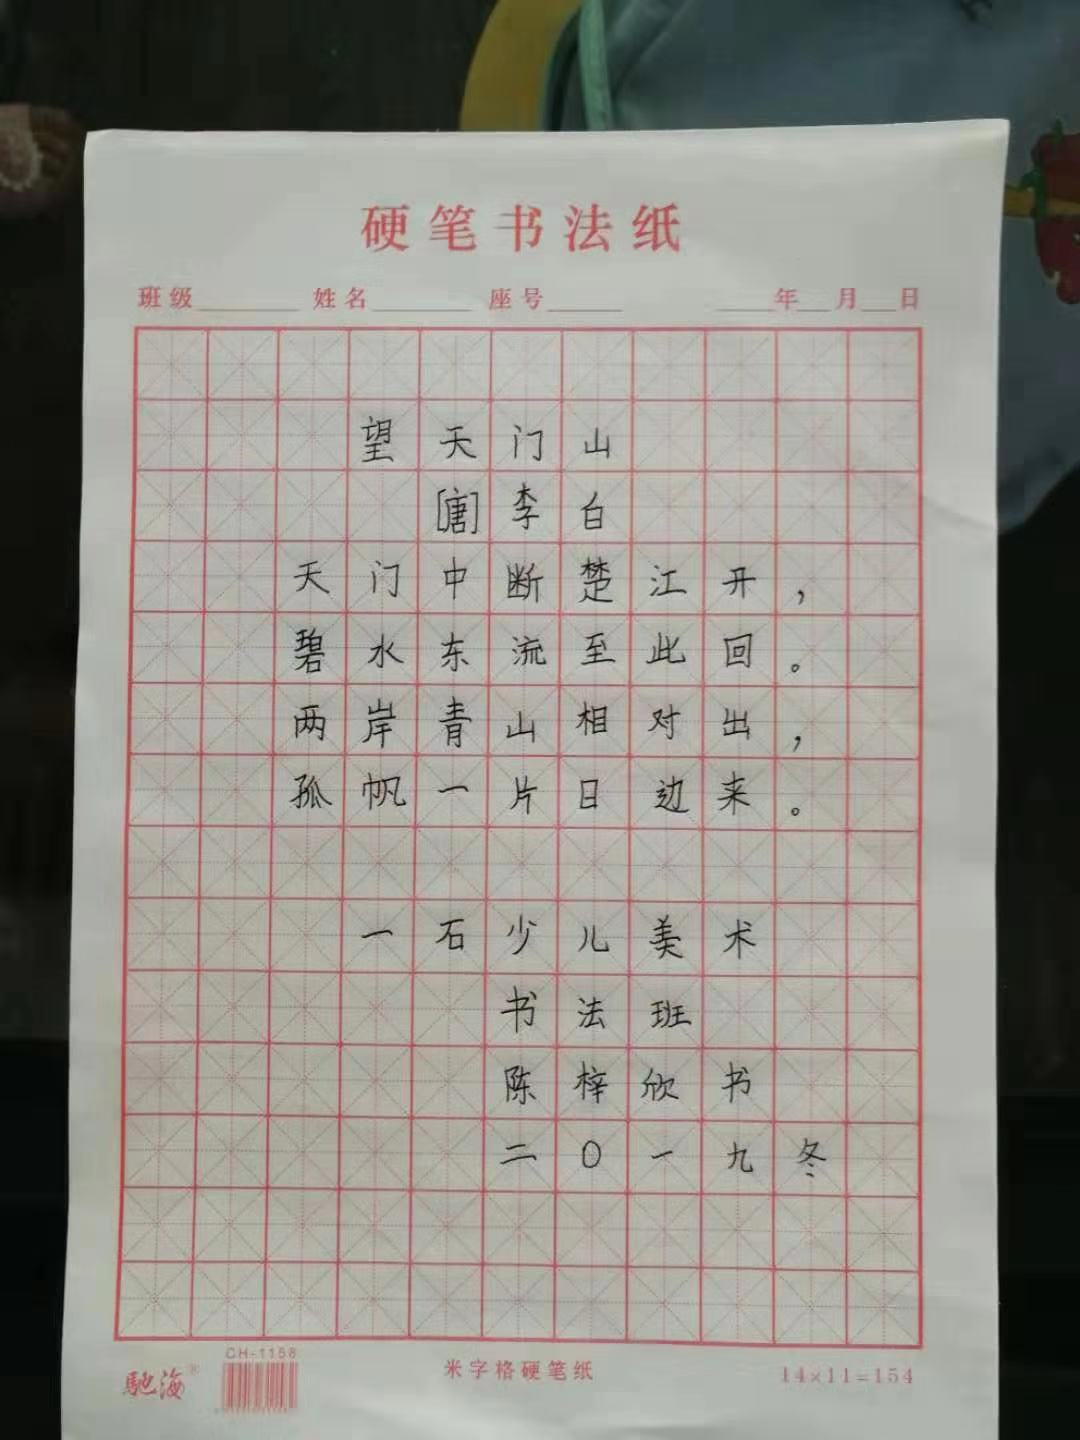 硬笔书法纸
班级 姓名 座号 年 月 日
望天门山
[唐]李白
天门中断楚江开，
碧水东流至此回。
两岸青山相对出，
孤帆一片日边来。
一石少儿美术
书法班
陈梓欣书
二〇一九冬
馳海® CH-1158 米字格硬笔纸 14×11=154